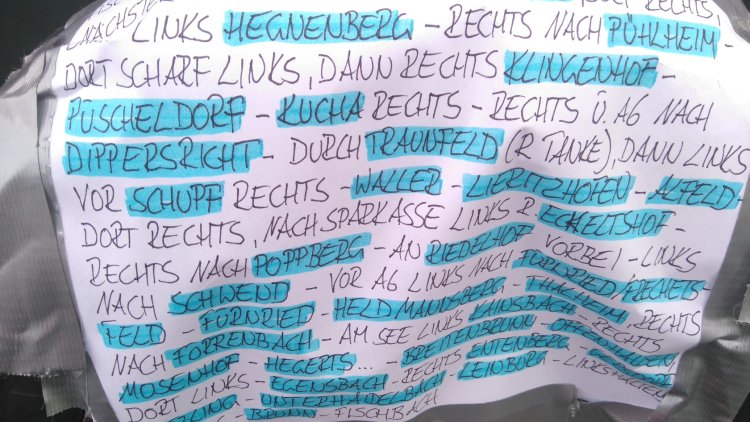 NÄCHSTER LINKS HEGNENBERG - RECHTS NACH PÜHLHEIM -
DORT SCHARF LINKS, DANN RECHTS KLINGENHOF -
PÜSCHELDORF - KUCHA RECHTS - RECHTS Ü. A6 NACH
DIPPERSRICHT - DURCH TRAUNFELD (R TANKE), DANN LINKS
VOR SCHUPF RECHTS - WALLER - LIERITZHOFEN - ALFELD -
DORT RECHTS, NACH SPARKASSE LINKS R. ECHELTSHOF -
RECHTS NACH POPPBERG - AN RIEDELHOF VORBEI - LINKS
NACH SCHWEND - VOR A6 LINKS NACH FÜRNRIED/FRECHETS-
FELD - FÜRNRIED - HELDMANNSBERG - THALHEIM, RECHTS
NACH FÖRRENBACH - AM SEE LINKS KAINSBACH - RECHTS
MOSENHOF - HEGERTS... - BREITENBRUNN - OFFENHAUSEN,
DORT LINKS - EGENSBACH - RECHTS ENTENBERG -
UNTERHAIDELBACH - LEINBURG - LINKS
BRUNN - FISCHBACH